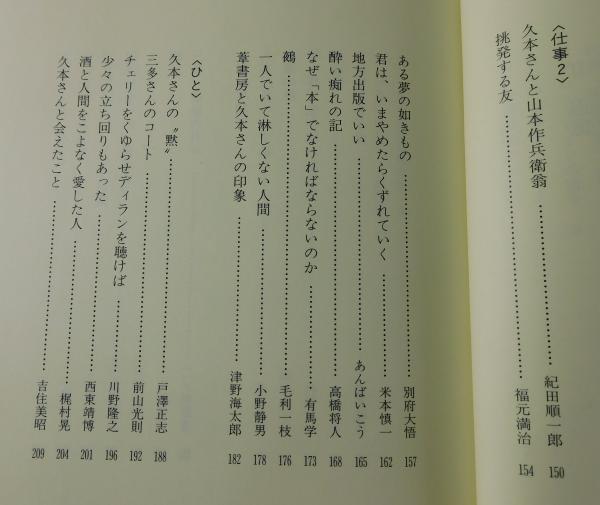 〈仕事2〉
久本さんと山本作兵衛翁 紀田順一郎 150
挑発する友 福元満治 154
ある夢の如きもの 別府大悟 157
君は、いまやめたらくずれていく 米本慎一 162
地方出版でいい あんばいこう 165
酔い痴れの記 高橋将人 168
なぜ「本」でなければならないのか 有馬学 173
鵺 毛利一枝 176
一人でいて淋しくない人間 小野静男 178
葦書房と久本さんの印象 津野海太郎 182
〈ひと〉
久本さんの〝黙〟 戸澤正志 188
三多さんのコート 前山光則 192
チェリーをくゆらせディランを聴けば 川野隆之 196
少々の立ち回りもあった 西東靖博 201
酒と人間をこよなく愛した人 梶村晃 204
久本さんと会えたこと 吉住美昭 209